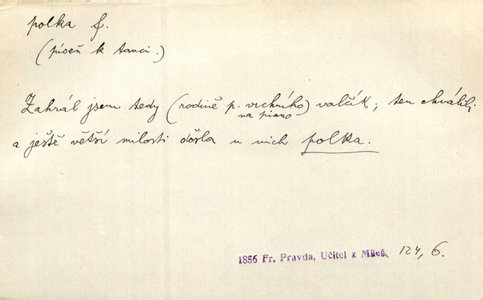 polka f.
(píseň k tanci.)
Zahrál jsem tedy (rodině p. vrchního) valčík; ten chválili,
na piano
a ještě větší milosti došla u nich polka.
1856 Fr. Pravda, Učitel z Mileš. 124, 6.